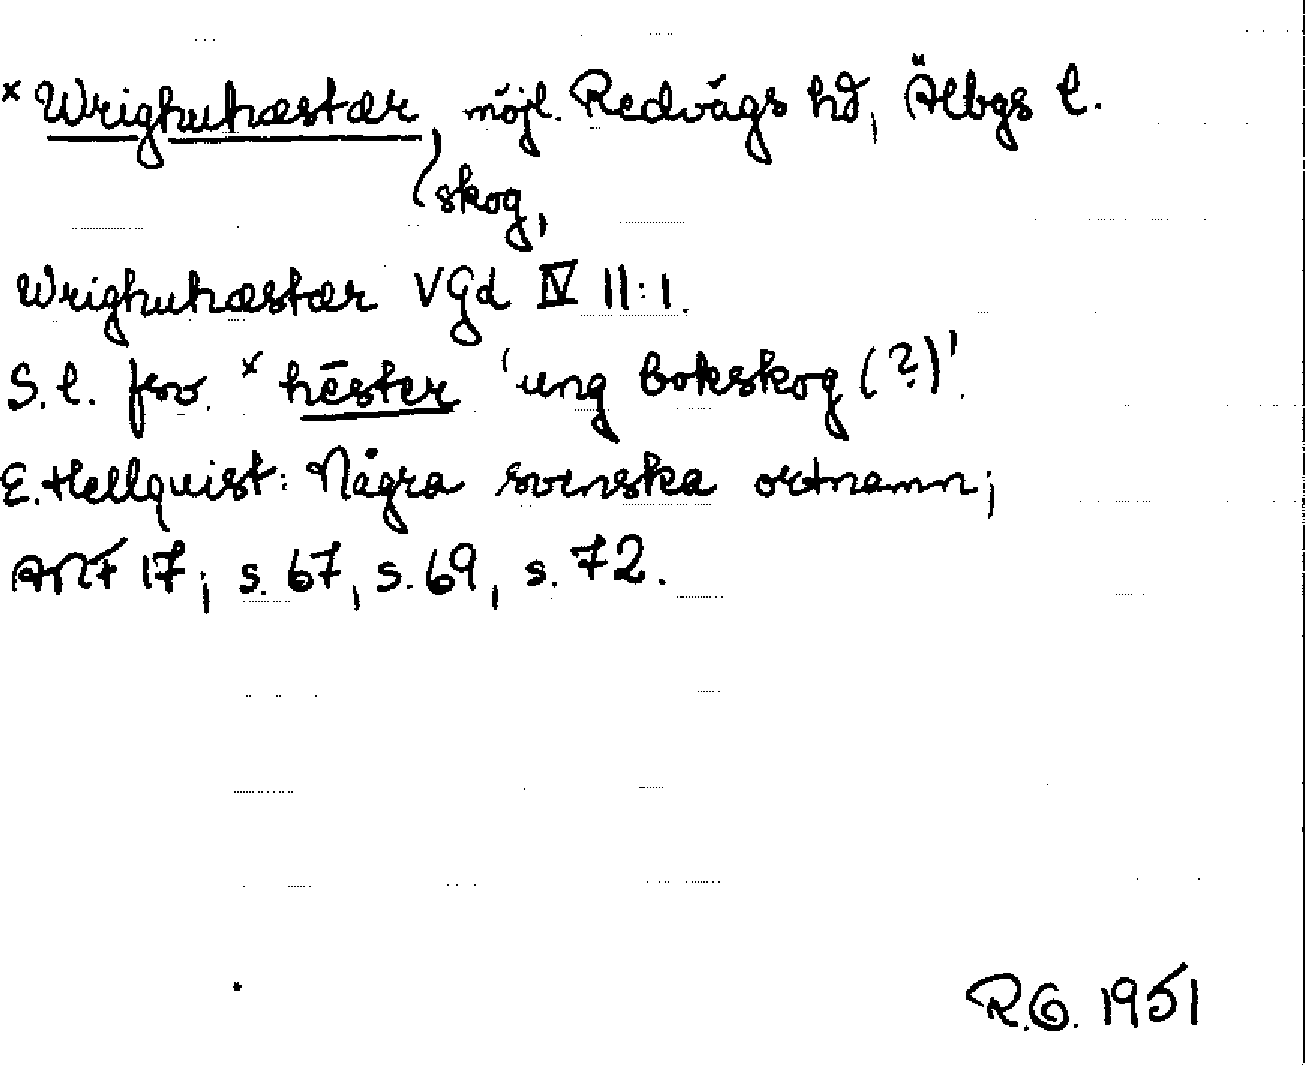 × Wrighuhæstær, möjl. Redvägs hd, Älbgs l.
skog,
Wrighuhæstær VGd IV 11:1.
S.l. fsv. × hēster 'ung bokskog (?)'.
E. Hellquist: Några svenska ortnamn;
ANF 17, s. 67, s. 69, s. 72.
R.G. 1951